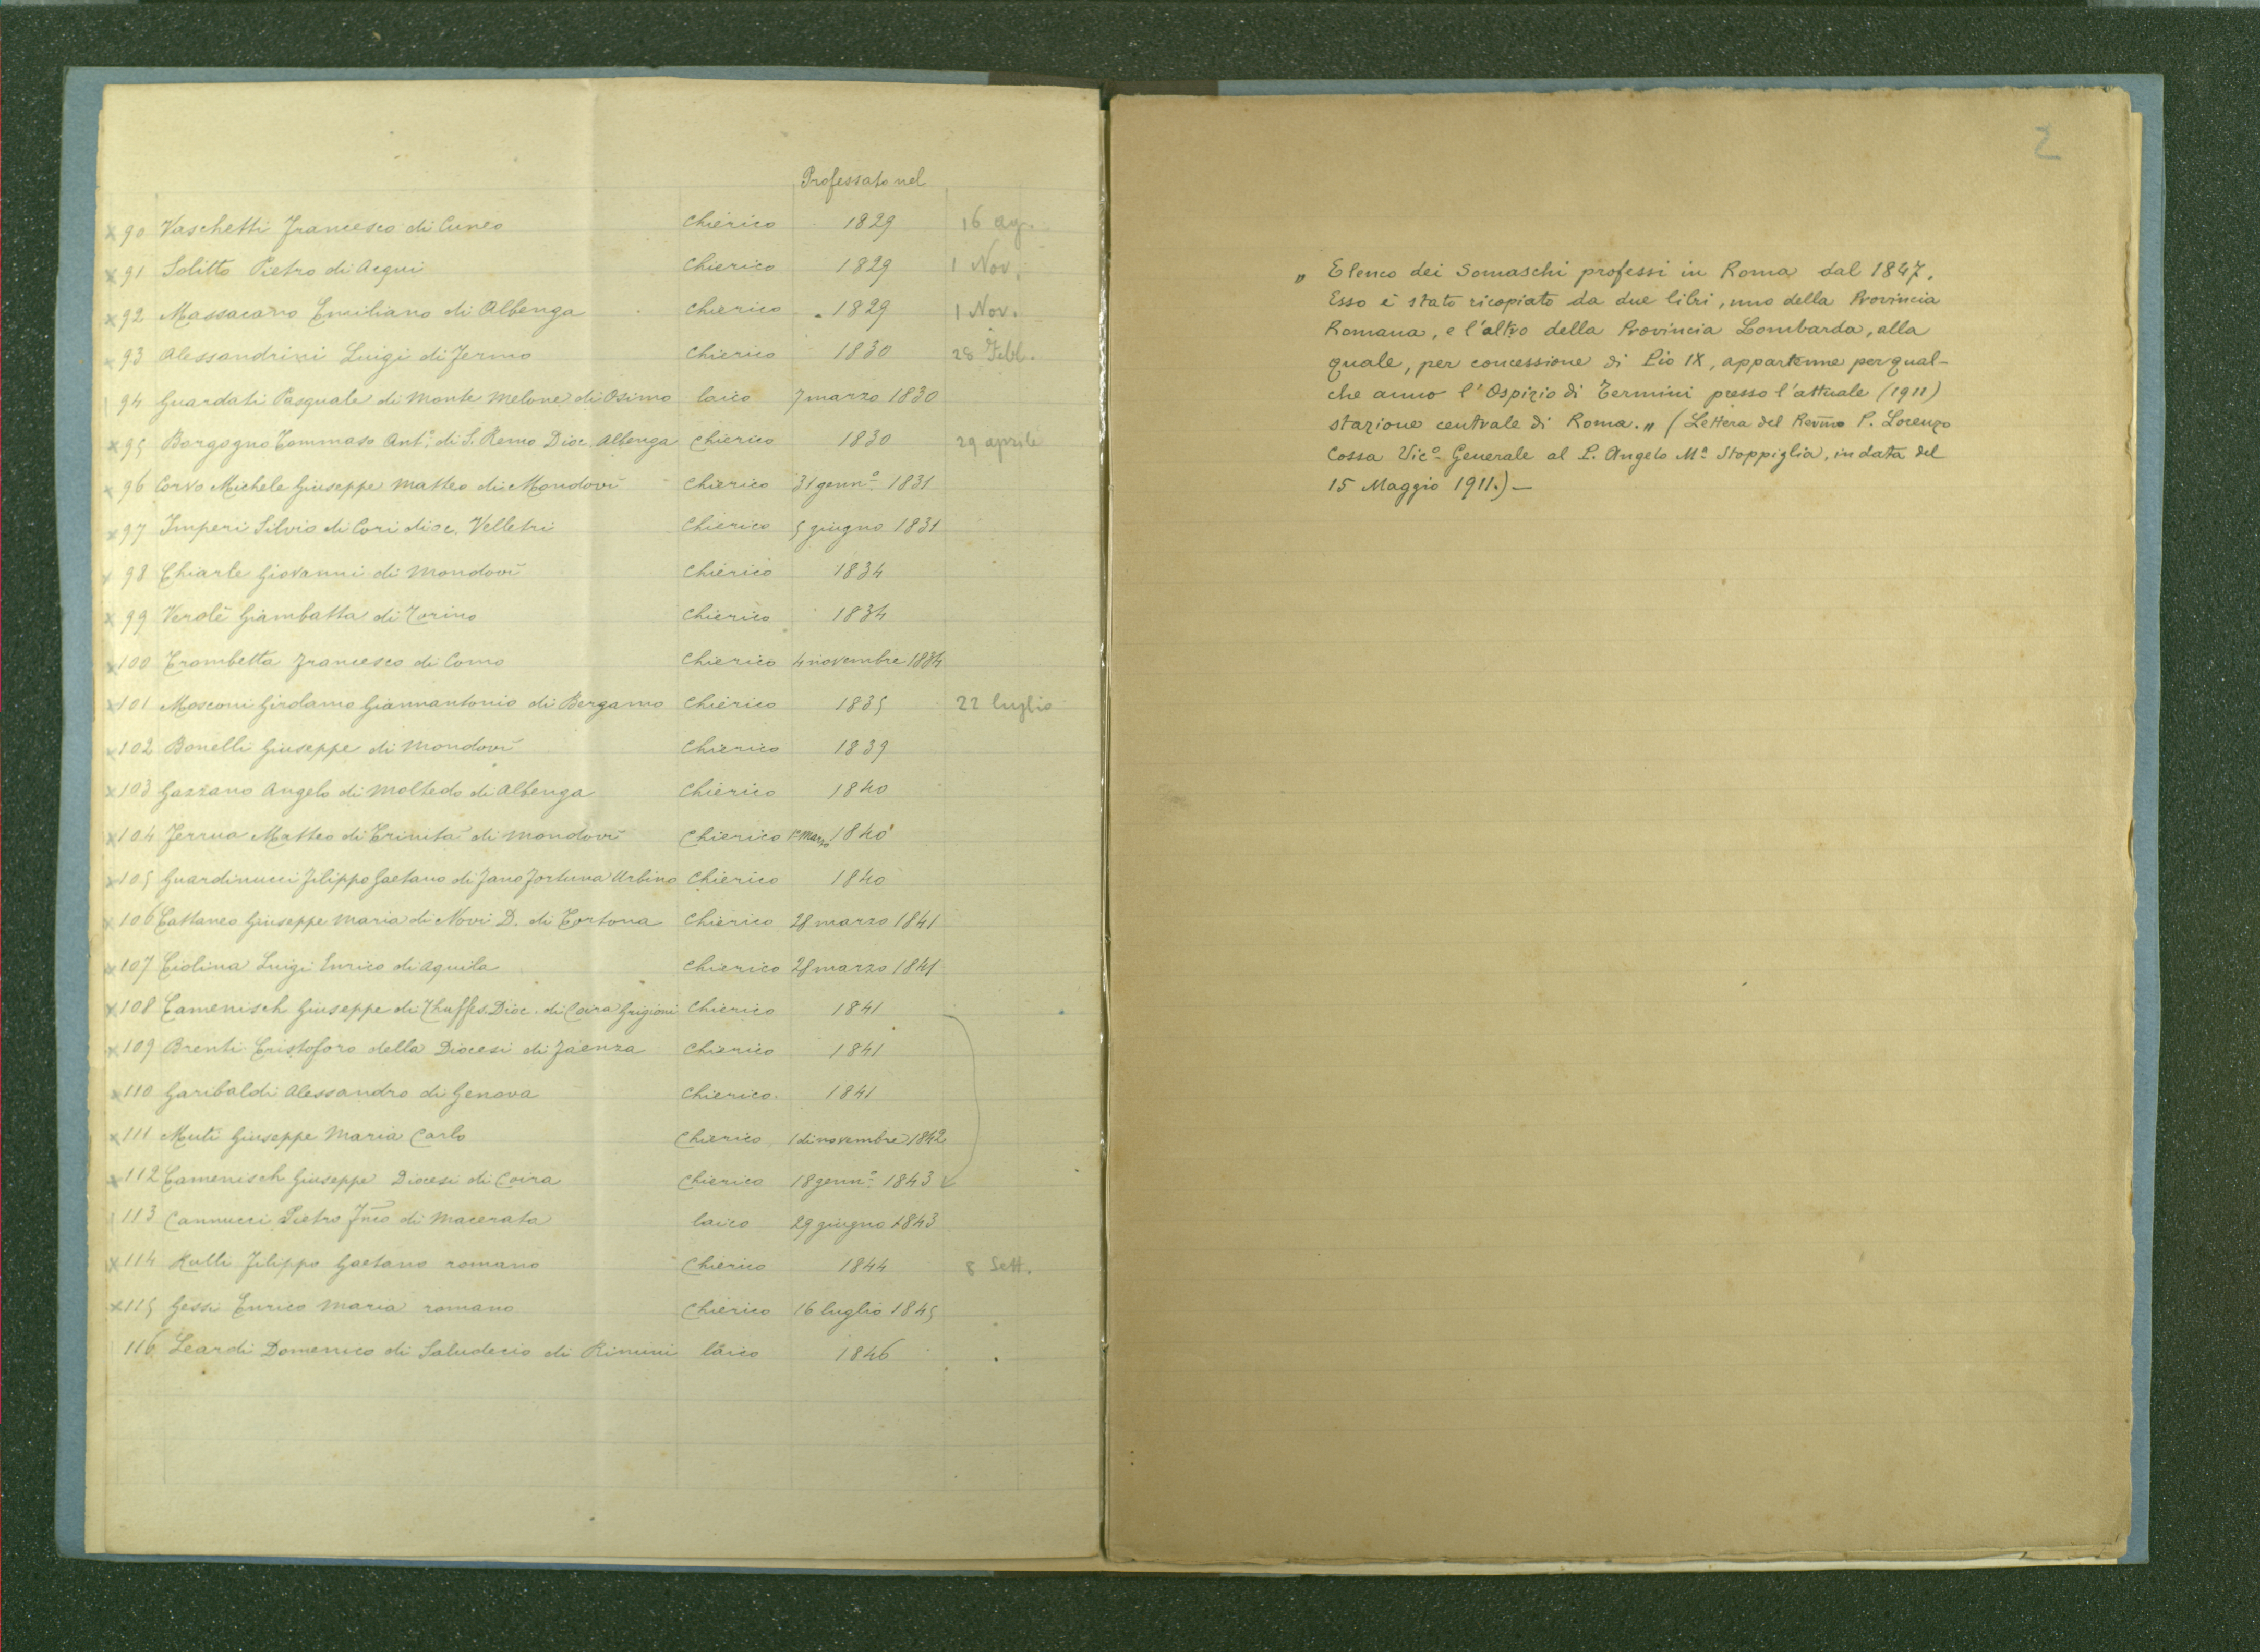 Professato nel
x 90 Vaschetti Francesco di Cuneo Chierico 1829 16 ag.
x 91 Solitto Pietro di Acqui Chierico 1829 1 Nov.
x 92 Massacano Emiliano di Albenga Chierico 1829 1 Nov.
x 93 Alessandrini Luigi di Fermo Chierico 1830 28 Febb.
94 Guardati Pasquale di Monte Melone di Osimo laico 7 marzo 1830
x 95 Borgogno Tommaso Ant.º di S. Remo Dioc. Albenga Chierico 1830 29 aprile
x 96 Corvo Michele Giuseppe Matteo di Mondovì Chierico 31 genn.º 1831
x 97 Imperi Silvio di Cori dioc. Velletri Chierico 5 giugno 1831
x 98 Chiarle Giovanni di Mondovì Chierico 1834
x 99 Verolè Giambatta di Torino Chierico 1834
x 100 Trombetta Francesco di Como Chierico 4 novembre 1834
x 101 Mosconi Girolamo Giannantonio di Bergamo Chierico 1835 22 luglio
x 102 Bonelli Giuseppe di Mondovì Chierico 1839
x 103 Gazzano Angelo di Moltedo di Albenga Chierico 1840
x 104 Ferrua Matteo di Trinità di Mondovì Chierico marzo 1840
x 105 Guardinucci Filippo Gaetano di Fano Fortuna Urbino Chierico 1840
x 106 Cattaneo Giuseppe Maria di Novi D. di Tortona Chierico 28 marzo 1841
x 107 Ciolina Luigi Enrico di Aquila Chierico 28 marzo 1841
x 108 Camenisch Giuseppe di Dioc. di Coira Grigioni Chierico 1841
x 109 Brenti Cristoforo della Diocesi di Faenza Chierico 1841
x 110 Garibaldi Alessandro di Genova Chierico 1841
x 111 Muti Giuseppe Maria Carlo Chierico 1 di novembre 1842
x 112 Camenisch Giuseppe Diocesi di Coira Chierico 18 genn.º 1843
113 Cannucci Pietro Fnco di Macerata laico 29 giugno 1843
x 114 Rulli Filippo Gaetano romano Chierico 1844 8 Sett.
x 115 Gessi Enrico Maria romano Chierico 16 luglio 1845
116 Leardi Domenico di Saludecio di Rimini laico 1846
2
„ Elenco dei Somaschi professi in Roma dal 1847.
Esso è stato ricopiato da due libri, uno della Provincia
Romana, e l'altro della Provincia Lombarda, alla
quale, per concessione di Pio IX, appartenne per qual-
che anno l'Ospizio di Termini presso l'attuale (1911)
stazione centrale di Roma. „ (Lettera del Revmo P. Lorenzo
Cossa Vicº Generale al P. Angelo Mª Stoppiglia, in data del
15 Maggio 1911.)—